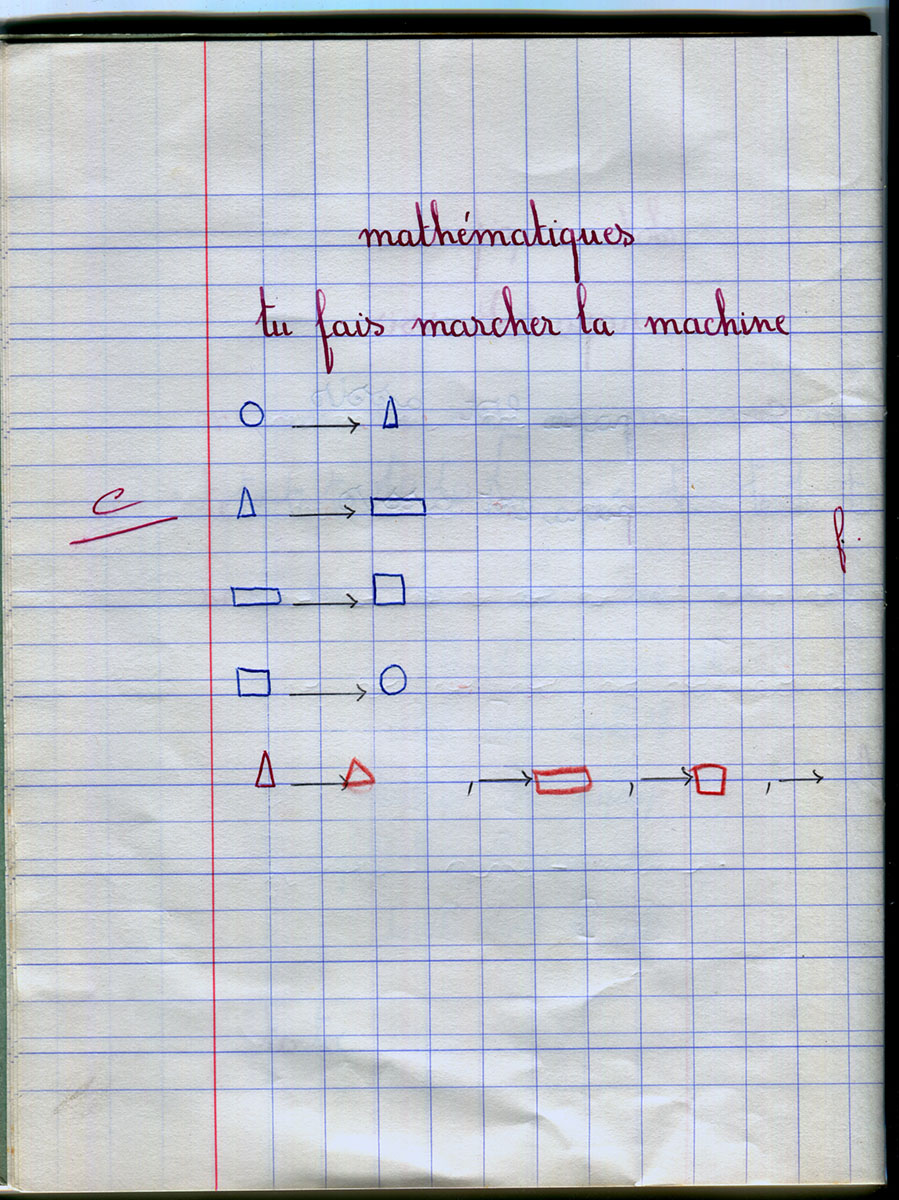 mathématiques
tu fais marcher la machine
C
f.